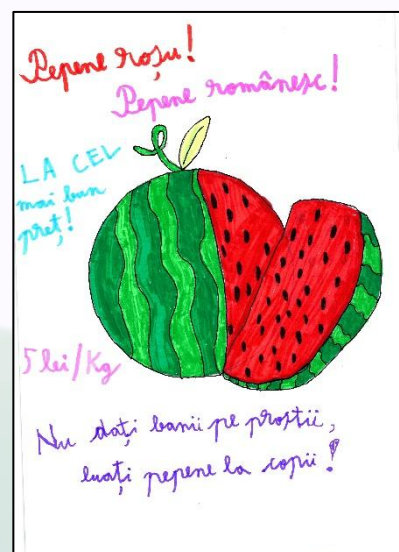 Pepene roșu!
Pepene românesc!
LA CEL
mai bun
preț!
5 lei/Kg
Nu dați banii pe prostii,
luați pepene la copii!